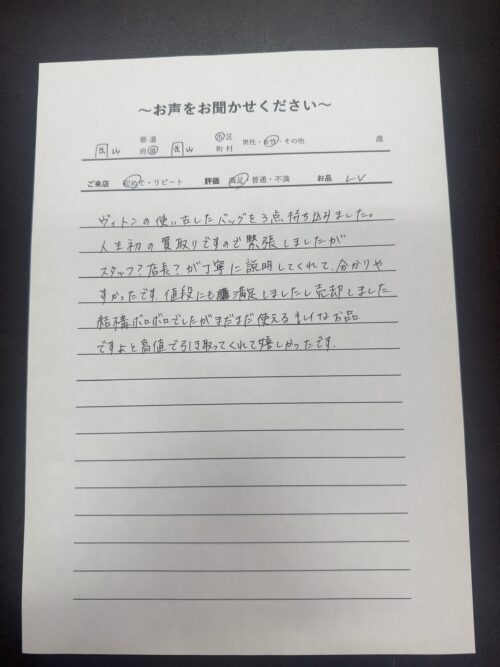 ～お声をお聞かせください～
岡山 都道府県 岡山 市区町村 男性・女性・その他 歳
ご来店 初めて・リピート 評価 満足・普通・不満 お品 LV
ヴィトンの使い古したバッグを3点持ち込みました。
人生初の買取りですので緊張しましたが
スタッフ？店長？が丁寧に説明してくれて、分かりや
すかったです。値段にも満足しましたし売却しました。
結構ボロボロでしたがまだまだ使えるキレイなお品
ですよと高値で引き取ってくれて嬉しかったです.